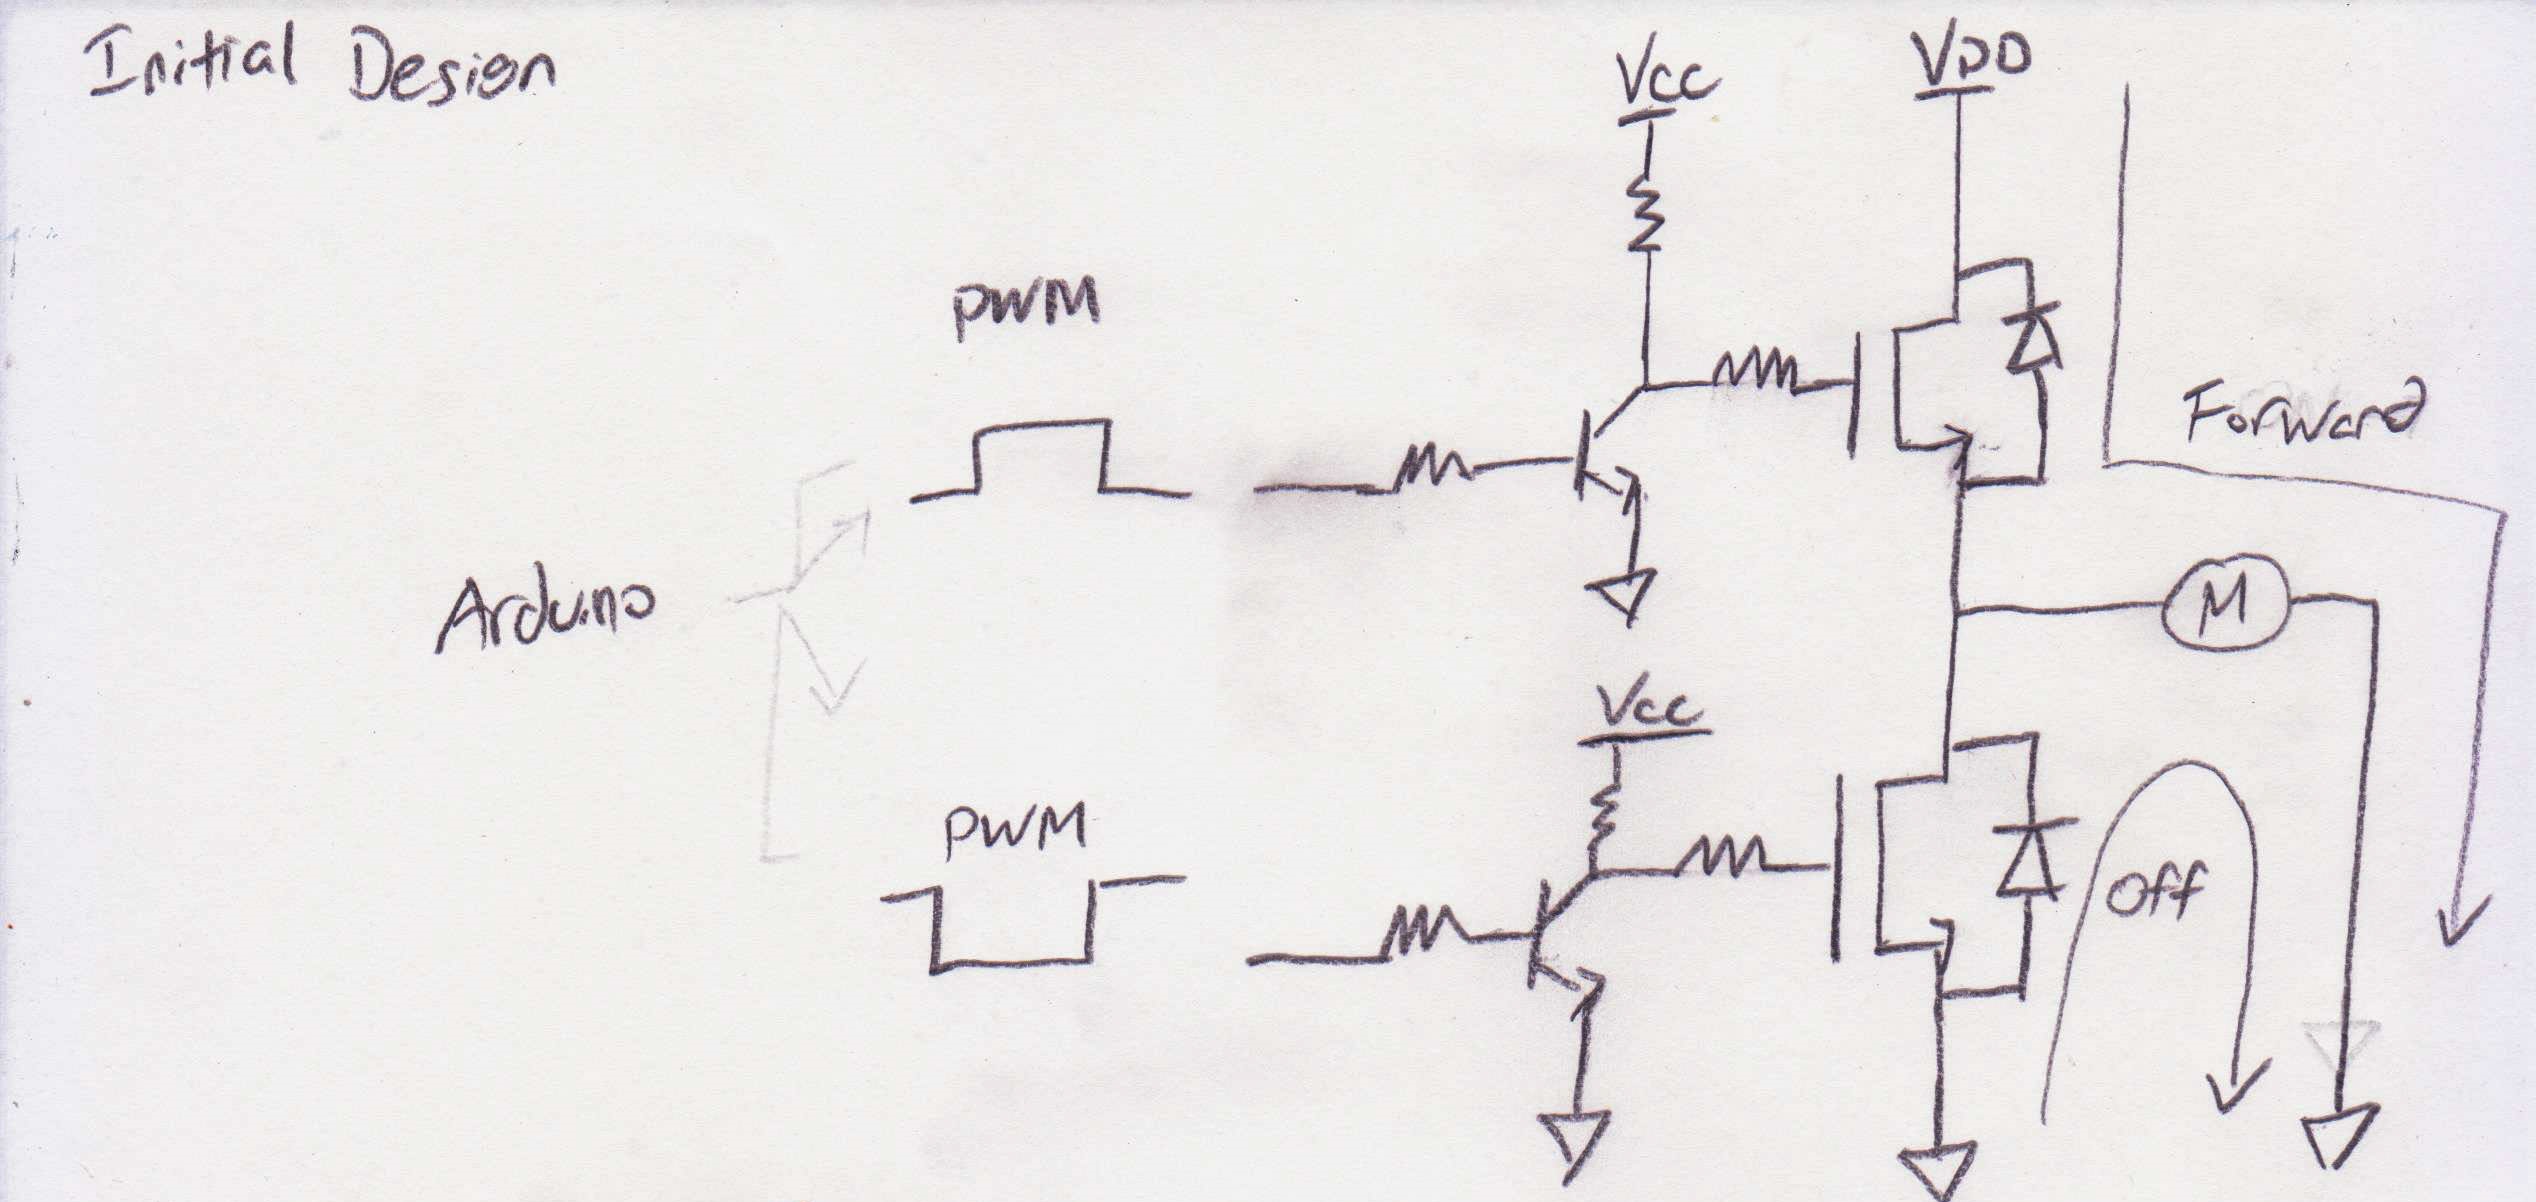 Initial Design
Vcc
VDD
PWM
Forward
Arduino
M
Vcc
PWM
Off